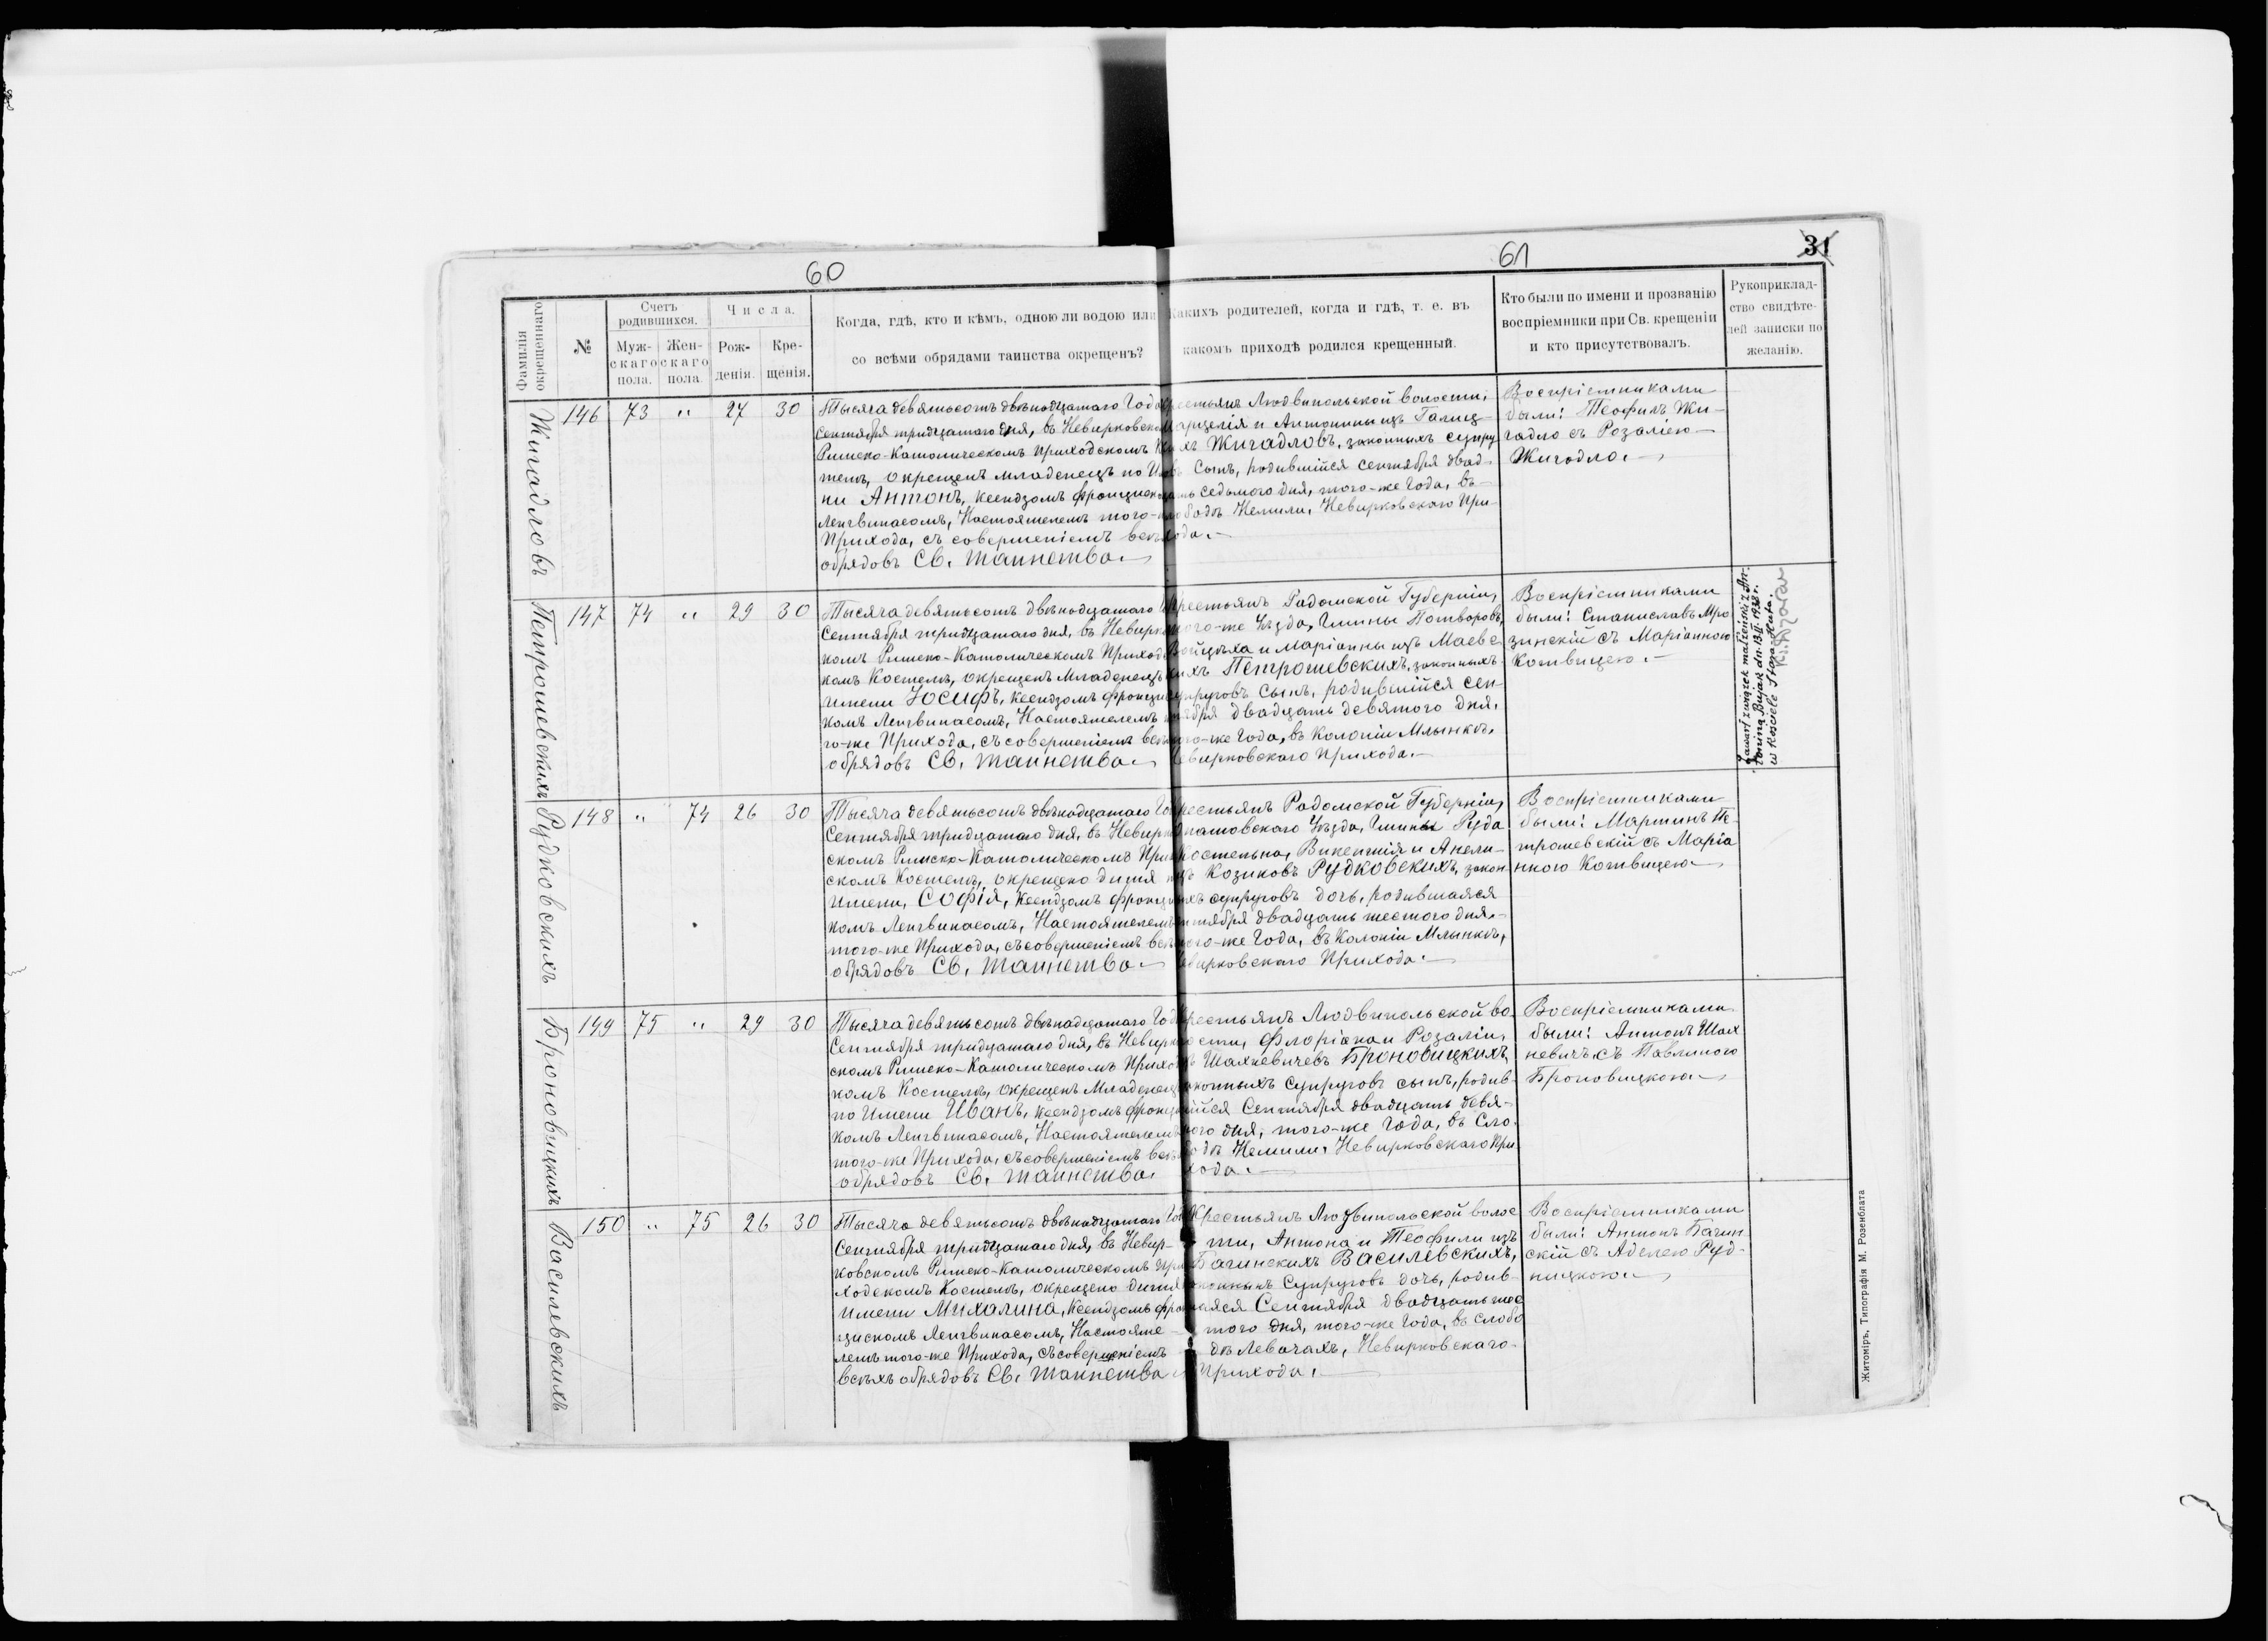 60
61
31
Фамилія окрещеннаго.
№
Счетъ родившихся.
Муж-скаго пола.
Жен-скаго пола.
Числа.
Рож-денія.
Кре-щенія.
Когда, гдѣ, кто и кѣмъ, одною ли водою или
со всѣми обрядами таинства окрещенъ?
какихъ родителей, когда и гдѣ, т. е. въ
какомъ приходѣ родился крещенный.
Кто были по имени и прозванію
воспріемники при Св. крещеніи
и кто присутствовалъ.
Рукоприклад-
ство свидѣте-
лей записки по
желанію.
Жигадловъ
146 73 " 27 30
Тысяча девятьсотъ двѣнадцатаго Года
Сентября тридцатаго дня, въ Невирковском
Римско-Католическомъ Приходскомъ Ко
телѣ, окрещенъ младенецъ по Име
ни Антонъ, Ксендзомъ Францискомъ
Ленгвинасомъ, Настоятелемъ того-же
Прихода, съ совершеніемъ всѣхъ
обрядовъ Св. Таинства.
крестьянъ Людвипольской волости,
Марцелія и Антонины изъ Галиц-
кихъ Жигадловъ, законныхъ супру
говъ Сынъ, родившійся сентября двад-
цать седьмого дня, того-же Года, въ
Слободѣ Немили, Невирковскаго При-
хода.
Воспріемниками
были: Теофилъ Жи-
гадло съ Розаліею
Жигодло.
Петрошевскихъ
147 74 " 29 30
Тысяча девятьсотъ двѣнадцатаго
Сентября тридцатаго дня, въ Невирко
комъ Римско-Католическомъ Приход
комъ Костелѣ, окрещенъ Младенецъ
имени Юсифъ, Ксендзомъ Францис
комъ Ленгвинасомъ, Настоятелемъ
го-же Прихода, съ совершеніемъ всѣ
обрядовъ Св. Таинства.
крестьянъ Радомской Губерніи,
того-же Уѣзда, Гмины Потворовъ,
Войцѣха и Маріанны изъ Маевс
кихъ Петрошевскихъ, законныхъ
супруговъ Сынъ, родившійся сен-
тября двадцать девятого дня,
того-же Года, въ Колоніи Млынкѣ,
Невирковскаго Прихода.
Воспріемниками
были: Станиславъ Мро
зинскій съ Маріанною
Котвицею.
Zawarł związek małżeński z An-
toniną Bujak dn. 13.II.1938 r.
w Kościele Stara Huta.
Рудковскихъ
148 " 74 26 30
Тысяча девятьсотъ двѣнадцатаго Го
Сентября тридцатаго дня, въ Невирко
скомъ Римско-Католическомъ При
скомъ Костелѣ, окрещено дитя
имени, Софія, Ксендзомъ Францис
комъ Ленгвинасомъ, Настоятелемъ
того-же Прихода, съ совершеніемъ всѣ
обрядовъ Св. Таинства.
крестьянъ Радомской Губерніи,
Опатовскаго Уѣзда, Гмины Руда
Костельна, Викентія и Анели
изъ Козиковъ Рудковскихъ, закон
ныхъ супруговъ дочь, родившаяся
Сентября двадцать шестого дня,
того-же Года, въ Колоніи Млынкѣ,
Невирковскаго Прихода.
Воспріемниками
были: Мартинъ Пе-
трошевскій съ Маріа
нною Котвицею
Броновицкихъ
149 75 " 29 30
Тысяча девятьсотъ двѣнадцатаго Года
Сентября тридцатаго дня, въ Невирко
скомъ Римско-Католическомъ Приход
комъ Костелѣ, окрещенъ Младенец
по Имени Иванъ, Ксендзомъ Францис
комъ Ленгвинасомъ, Настоятелемъ
того-же Прихода, съ совершеніемъ всѣ
обрядовъ Св. Таинства.
крестьянъ Людвипольской во
лости, Флоріана и Розаліи,
изъ Шахневичевъ Броновицкихъ,
законныхъ Супруговъ сынъ, родив-
шійся Сентября двадцать девя-
того дня, того-же Года, въ Сло
бодѣ Немили, Невирковскаго При
хода.
Воспріемниками
были: Антонъ Шах
невичъ съ Павлиною
Броновицкою
Василевскихъ
150 " 75 26 30
Тысяча девятьсотъ двѣнадцатаго Год
Сентября тридцатаго дня, въ Невир-
ковскомъ Римско-Католическомъ При
ходскомъ Костелѣ, окрещено дитя
имени Михалина, Ксендзомъ Фран
цискомъ Ленгвинасомъ, Настояте-
лемъ того-же Прихода, съ совершеніемъ
всѣхъ обрядовъ Св. Таинства
Крестьянъ Людвипольской волос
ти, Антона и Теофили изъ
Багинскихъ Василевскихъ,
законныхъ Супруговъ дочь, родив-
шаяся Сентября двадцать шес
того дня, того-же Года, въ слобо
дѣ Левачахъ, Невирковскаго
Прихода.
Воспріемниками
были: Антонъ Багин
скій съ Аделею Руд-
ницкою
Житоміръ, Типографія М. Розенблата